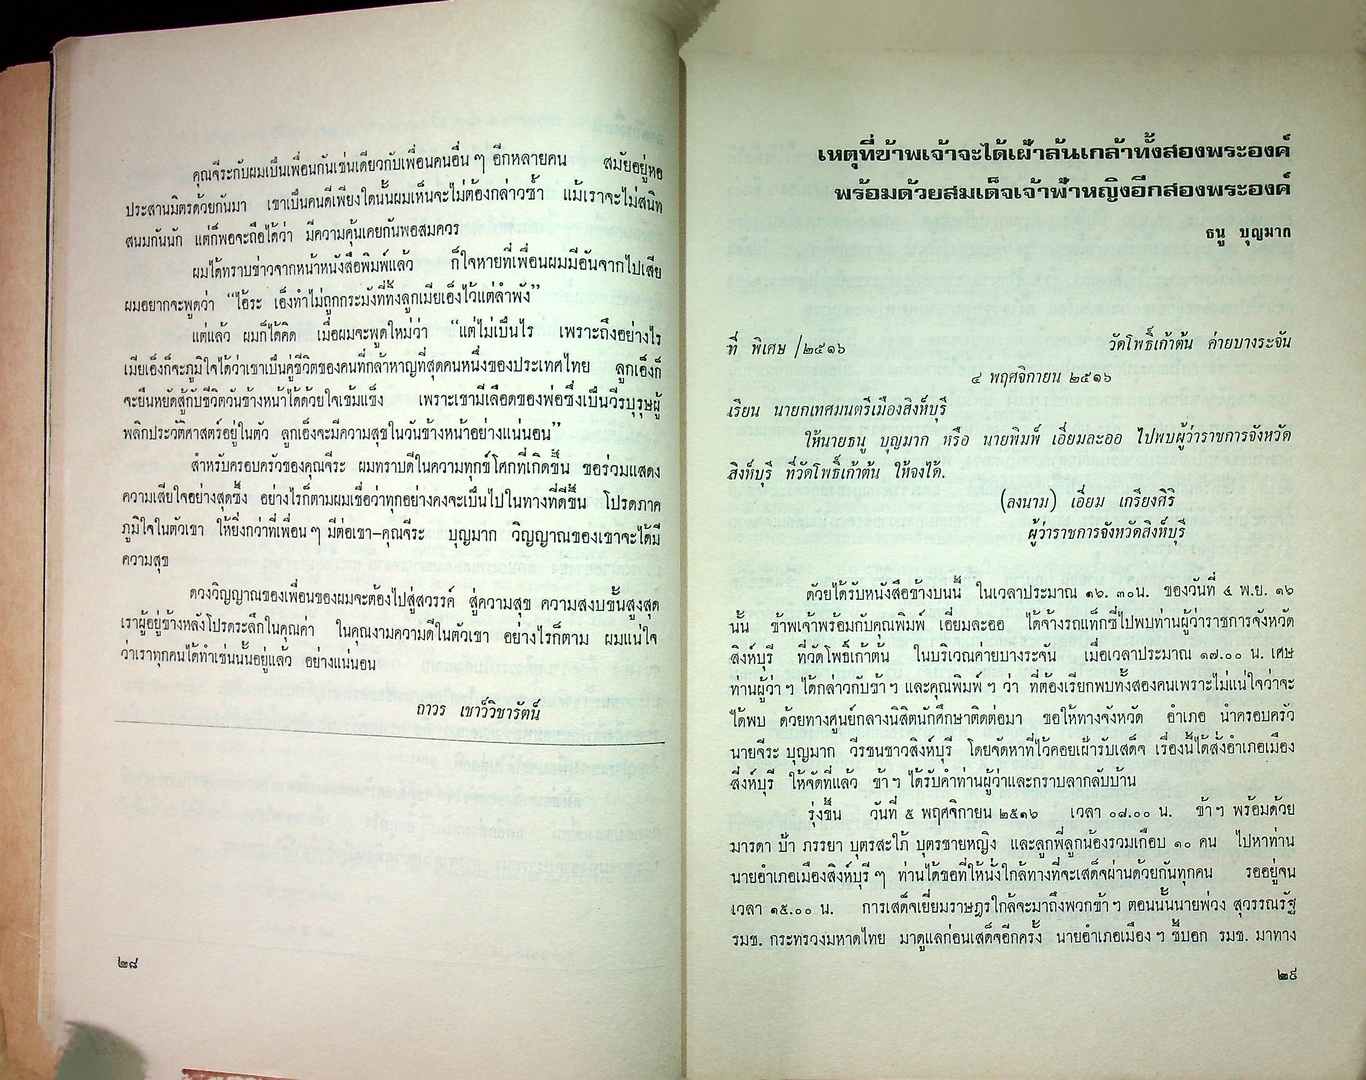 คุณจีระกับผมเป็นเพื่อนกันเช่นเดียวกับเพื่อนคนอื่น ๆ อีกหลายคน สมัยอยู่หอ
ประสานมิตรด้วยกันมา เขาเป็นคนดีเพียงใดนั้นผมเห็นจะไม่ต้องกล่าวซ้ำ แม้เราจะไม่สนิท
สนมกันนัก แต่ก็พอจะถือได้ว่า มีความคุ้นเคยกันพอสมควร
ผมได้ทราบข่าวจากหน้าหนังสือพิมพ์แล้ว ก็ใจหายที่เพื่อนผมมีอันจากไปเสีย
ผมอยากจะพูดว่า “ไอ้ระ เอ็งทำไม่ถูกกระมังที่ทิ้งลูกเมียเอ็งไว้แต่ลำพัง”
แต่แล้ว ผมก็ได้คิด เมื่อผมจะพูดใหม่ว่า “แต่ไม่เป็นไร เพราะถึงอย่างไร
เมียเอ็งก็จะภูมิใจได้ว่าเขาเป็นคู่ชีวิตของคนที่กล้าหาญที่สุดคนหนึ่งของประเทศไทย ลูกเอ็งก็
จะยืนหยัดสู้กับชีวิตวันข้างหน้าได้ด้วยใจเข้มแข็ง เพราะเขามีเลือดของพ่อซึ่งเป็นวีรบุรุษผู้
พลิกประวัติศาสตร์อยู่ในตัว ลูกเอ็งจะมีความสุขในวันข้างหน้าอย่างแน่นอน”
สำหรับครอบครัวของคุณจีระ ผมทราบดีในความทุกข์โศกที่เกิดขึ้น ขอร่วมแสดง
ความเสียใจอย่างสุดซึ้ง อย่างไรก็ตามผมเชื่อว่าทุกอย่างคงจะเป็นไปในทางที่ดีขึ้น โปรดภาค
ภูมิใจในตัวเขา ให้ยิ่งกว่าที่เพื่อน ๆ มีต่อเขา–คุณจีระ บุญมาก วิญญาณของเขาจะได้มี
ความสุข
ดวงวิญญาณของเพื่อนของผมจะต้องไปสู่สวรรค์ สู่ความสุข ความสงบขั้นสูงสุด
เราผู้อยู่ข้างหลังโปรดระลึกในคุณค่า ในคุณงามความดีในตัวเขา อย่างไรก็ตาม ผมแน่ใจ
ว่าเราทุกคนได้ทำเช่นนั้นอยู่แล้ว อย่างแน่นอน
ถาวร เชาว์วิชารัตน์
๒๘
เหตุที่ข้าพเจ้าจะได้เฝ้าล้นเกล้าทั้งสองพระองค์
พร้อมด้วยสมเด็จเจ้าฟ้าหญิงอีกสองพระองค์
ธนู บุญมาก
ที่ พิเศษ /๒๕๑๖ วัดโพธิ์เก้าต้น ค่ายบางระจัน
๔ พฤศจิกายน ๒๕๑๖
เรียน นายกเทศมนตรีเมืองสิงห์บุรี
ให้นายธนู บุญมาก หรือ นายพิมพ์ เอี่ยมละออ ไปพบผู้ว่าราชการจังหวัด
สิงห์บุรี ที่วัดโพธิ์เก้าต้น ให้จงได้.
(ลงนาม) เอี่ยม เกรียงศิริ
ผู้ว่าราชการจังหวัดสิงห์บุรี
ด้วยได้รับหนังสือข้างบนนี้ ในเวลาประมาณ ๑๖. ๓๐น. ของวันที่ ๔ พ.ย. ๑๖
นั้น ข้าพเจ้าพร้อมกับคุณพิมพ์ เอี่ยมละออ ได้จ้างรถแท็กซี่ไปพบท่านผู้ว่าราชการจังหวัด
สิงห์บุรี ที่วัดโพธิ์เก้าต้น ในบริเวณค่ายบางระจัน เมื่อเวลาประมาณ ๑๗.๐๐ น. เศษ
ท่านผู้ว่า ฯ ได้กล่าวกับข้า ฯ และคุณพิมพ์ ฯ ว่า ที่ต้องเรียกพบทั้งสองคนเพราะไม่แน่ใจว่าจะ
ได้พบ ด้วยทางศูนย์กลางนิสิตนักศึกษาติดต่อมา ขอให้ทางจังหวัด อำเภอ นำครอบครัว
นายจีระ บุญมาก วีรชนชาวสิงห์บุรี โดยจัดหาที่ไว้คอยเฝ้ารับเสด็จ เรื่องนี้ได้สั่งอำเภอเมือง
สิงห์บุรี ให้จัดที่แล้ว ข้า ฯ ได้รับคำท่านผู้ว่าและกราบลากลับบ้าน
รุ่งขึ้น วันที่ ๕ พฤศจิกายน ๒๕๑๖ เวลา ๐๘.๐๐ น. ข้า ฯ พร้อมด้วย
มารดา ป้า ภรรยา บุตรสะใภ้ บุตรชายหญิง และลูกพี่ลูกน้องรวมเกือบ ๑๐ คน ไปหาท่าน
นายอำเภอเมืองสิงห์บุรี ๆ ท่านได้ขอที่ให้นั่งใกล้ทางที่จะเสด็จผ่านด้วยกันทุกคน รออยู่จน
เวลา ๑๕.๐๐ น. การเสด็จเยี่ยมราษฎรใกล้จะมาถึงพวกข้า ฯ ตอนนั้นนายพ่วง สุวรรณรัฐ
รมช. กระทรวงมหาดไทย มาดูแลก่อนเสด็จอีกครั้ง นายอำเภอเมือง ฯ ชี้บอก รมช. มาทาง
๒๙